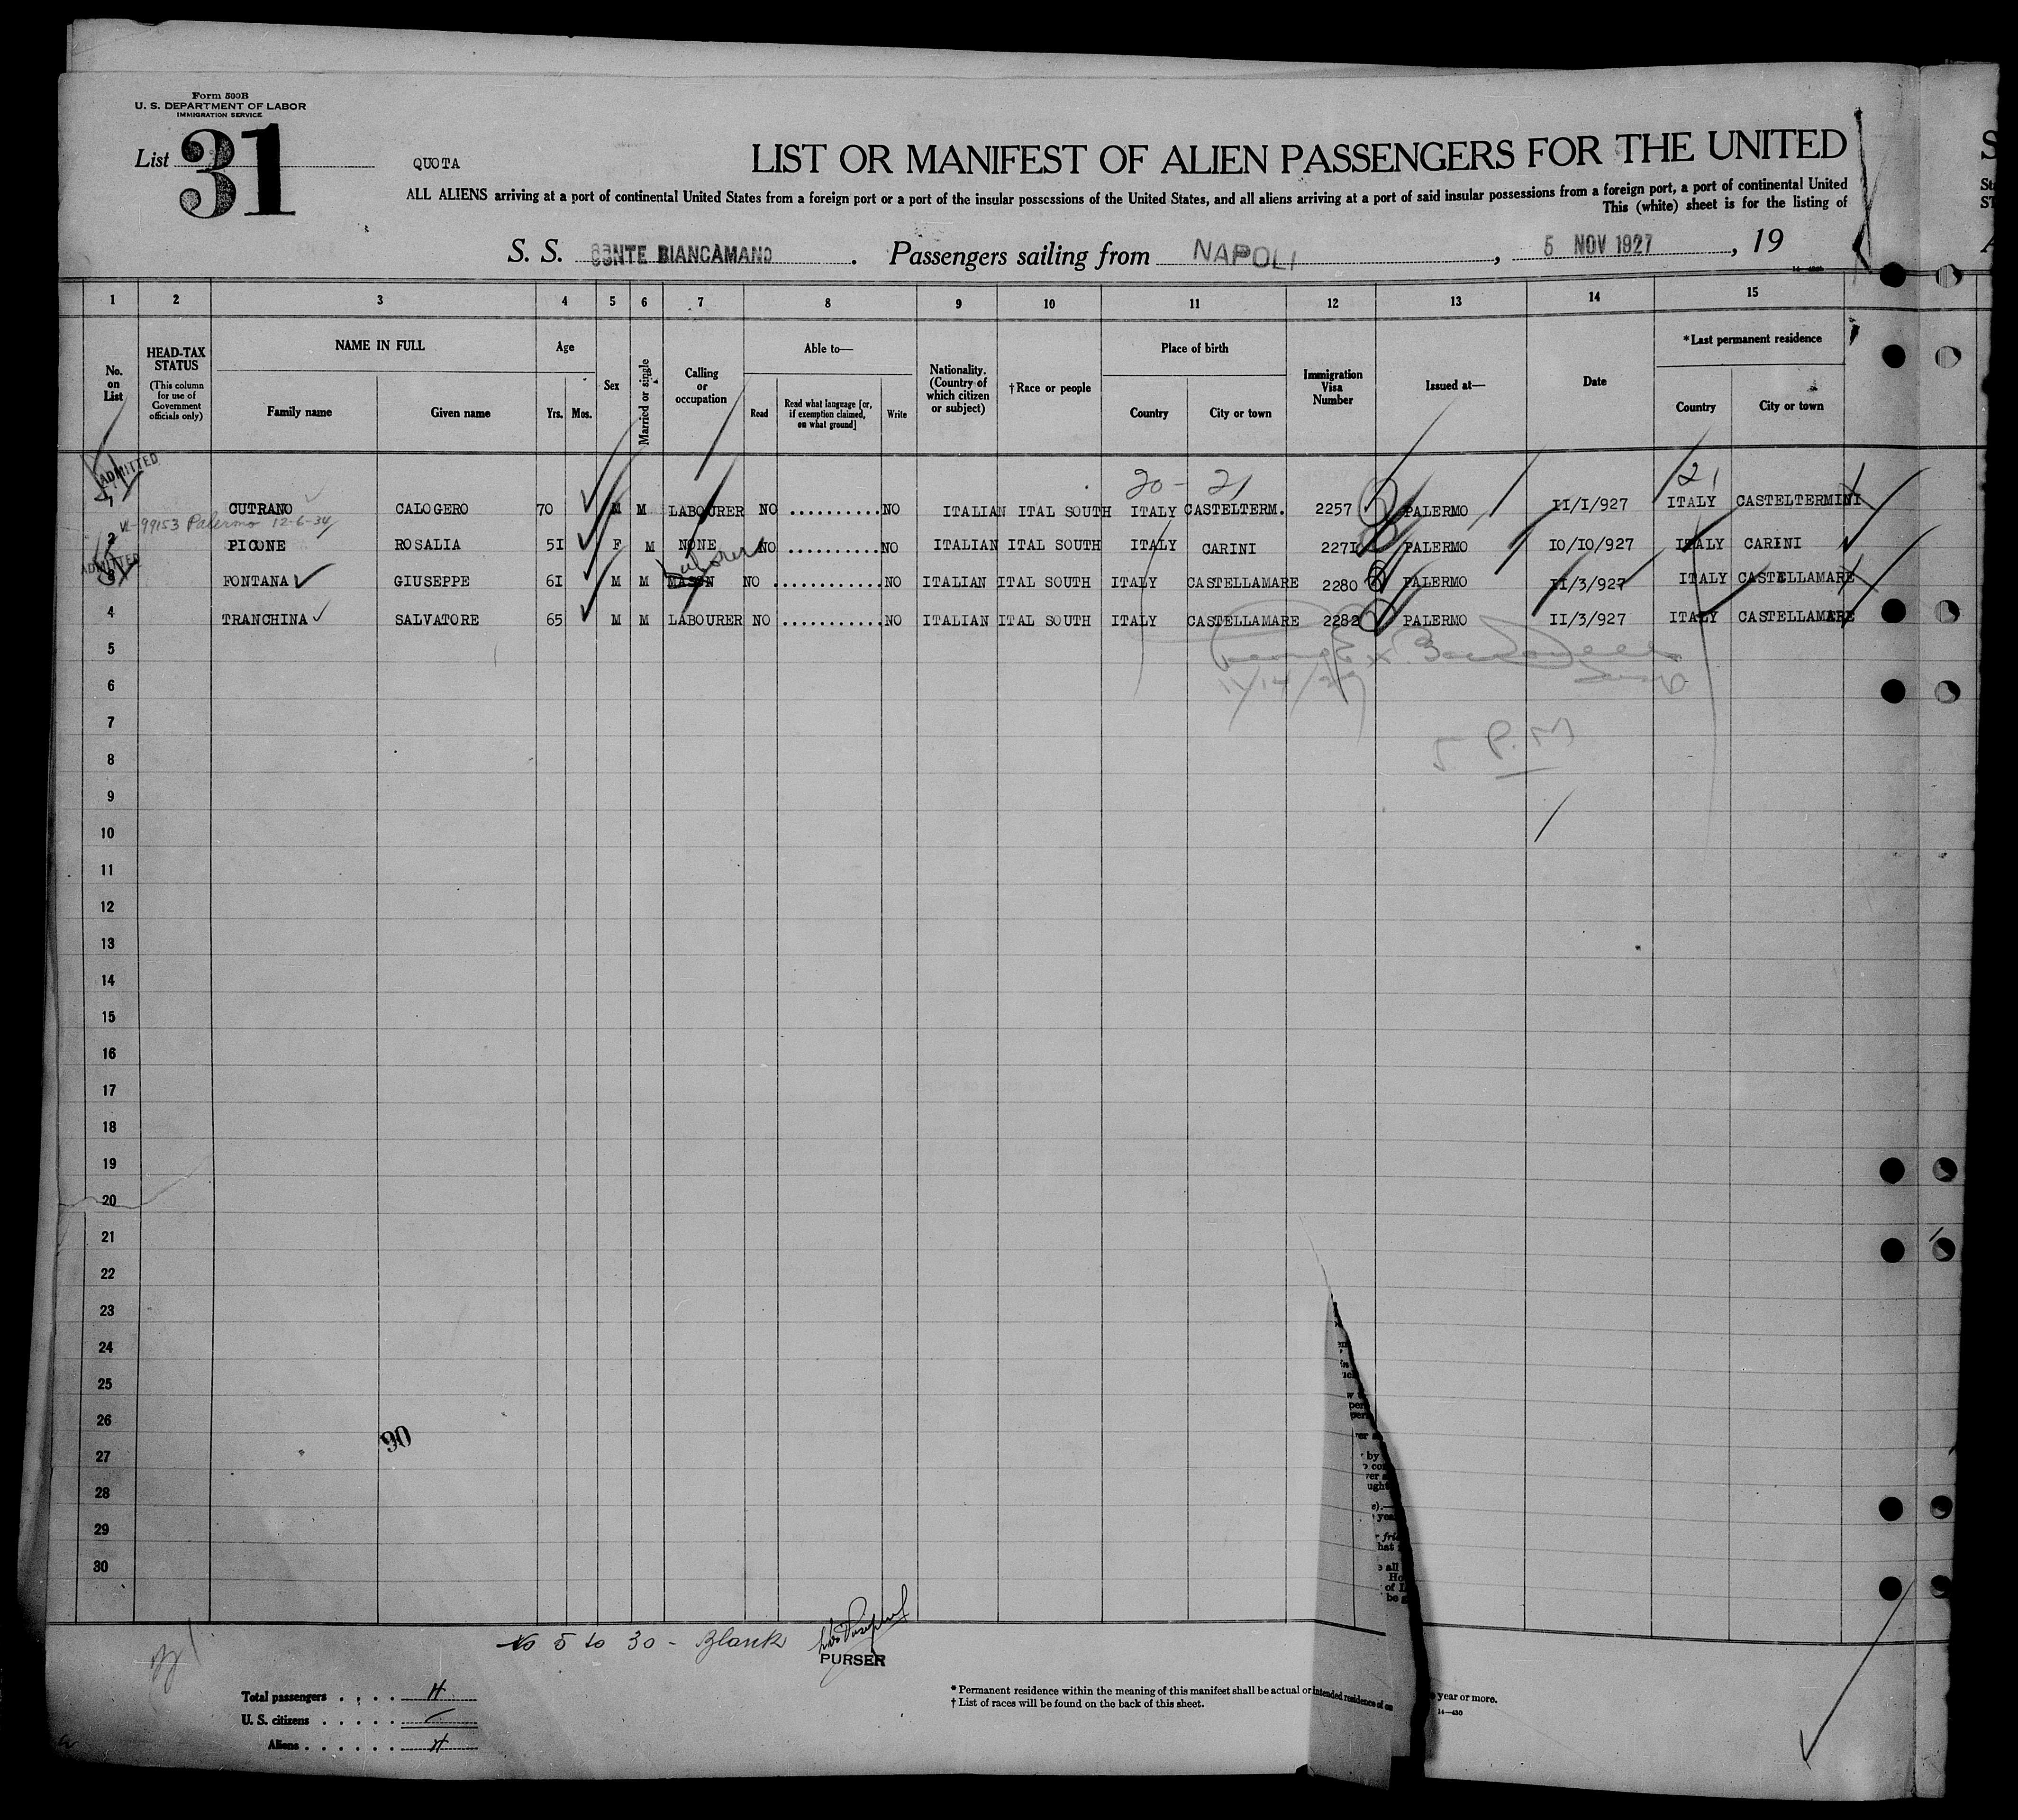 Form 500B
U. S. DEPARTMENT OF LABOR
IMMIGRATION SERVICE
List 31
QUOTA
LIST OR MANIFEST OF ALIEN PASSENGERS FOR THE UNITED
ALL ALIENS arriving at a port of continental United States from a foreign port or a port of the insular possessions of the United States, and all aliens arriving at a port of said insular possessions from a foreign port, a port of continental United
This (white) sheet is for the listing of
S. S. CONTE BIANCAMANO . Passengers sailing from NAPOLI , 5 NOV 1927 , 19
1 2 3 4 5 6 7 8 9 10 11 12 13 14 15
No. on List
HEAD-TAX STATUS (This column for use of Government officials only)
NAME IN FULL Family name Given name
Age Yrs. Mos.
Sex
Married or single
Calling or occupation
Able to— Read Read what language [or, if exemption claimed, on what ground] Write
Nationality. (Country of which citizen or subject)
†Race or people
Place of birth Country City or town
Immigration Visa Number
Issued at—
Date
*Last permanent residence Country City or town
ADMITTED
20 - 21
21
1 CUTRANO CALOGERO 70 M M LABOURER NO .......... NO ITALIAN ITAL SOUTH ITALY CASTELTERM. 2257 PALERMO II/I/927 ITALY CASTELTERMINI
99153 Palermo 12-6-34
2 PICONE ROSALIA 5I F M NONE NO .......... NO ITALIAN ITAL SOUTH ITALY CARINI 227I PALERMO I0/I0/927 ITALY CARINI
ADMITTED
Laborer
3 FONTANA GIUSEPPE 6I M M MASON NO ............ NO ITALIAN ITAL SOUTH ITALY CASTELLAMARE 2280 PALERMO II/3/927 ITALY CASTELLAMARE
4 TRANCHINA SALVATORE 65 M M LABOURER NO ........... NO ITALIAN ITAL SOUTH ITALY CASTELLAMARE 2282 PALERMO II/3/927 ITALY CASTELLAMARE
5
11/14/27
6
7
5 P.M
8
9
10
11
12
13
14
15
16
17
18
19
20
21
22
23
24
25
26
90
27
28
29
30
No 5 to 30 - Blank
PURSER
Total passengers . . . . 4
U. S. citizens . . . . . –
Aliens . . . . . . 4
* Permanent residence within the meaning of this manifest shall be actual or intended residence of one year or more.
† List of races will be found on the back of this sheet.
14—430